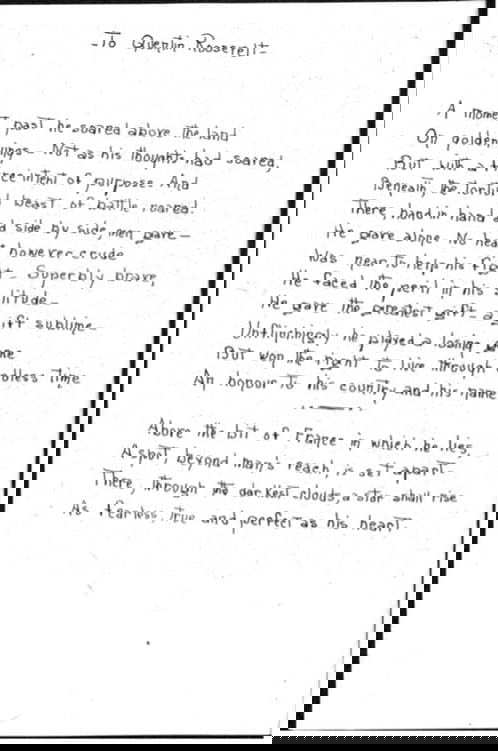 -To Quentin Roosevelt-
past he soared above the land
Not as his thought had soared,
intent of purpose. And
beast of battle roared
side by side, men gave-
however crude
Superbly brave
sublime
time
A
On golden
But with a
Beneath, the
There, hand in hand
He gave alone. No
Was near to help his
He faced the peril in his
He gave the greatest gift-
Unflinchingly he played a losing
But won the right to live through
An honour to his country and his name
Above the bit of France in which he lies,
A spot, beyond man's reach, is set apart-
There, through the darkest clouds a star shall rise
As fearless, true and perfect as his heart